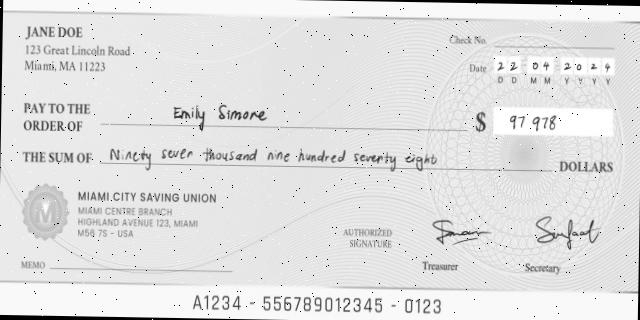 JANE DOE
123 Great Lincoln Road
Mianti, MA 11223
Check No.
Date 22 04 2024
D D M M Y Y Y Y
PAY TO THE
ORDER OF Emily Simone
$ 97 978
THE SUM OF Ninety seven thousand nine hundred seventy eight DOLLARS
M
MIAMI.CITY SAVING UNION
MIAMI CENTRE BRANCH
HIGHLAND AVENUE 123, MIAMI
M56 7S - USA
AUTHORIZED
SIGNATURE
Treasurer
Secretary
MEMO
A1234 - 556789012345 - 0123